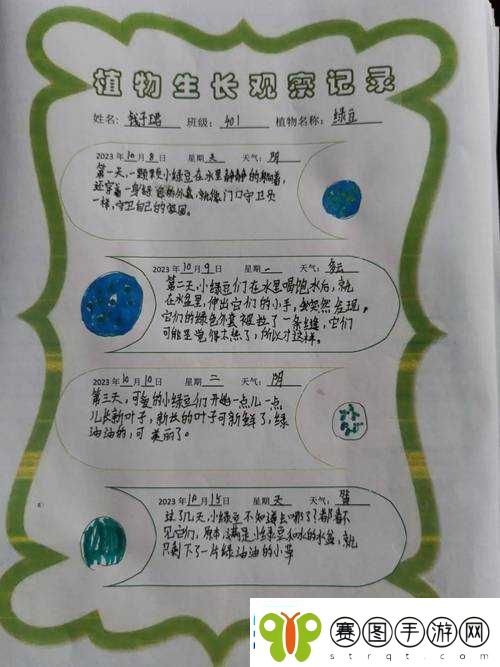 植物生长观察记录
姓名: 钱子珺 班级: 401 植物名称: 绿豆
2023年10月8日 星期天 天气: 阴
第一天,一颗颗小绿豆在水里静静的躺着,
还穿着一身绿色的外套,就像门口守卫员
一样,守卫自己的家园。
2023年10月9日 星期一 天气: 多云
第二天,小绿豆们在水里喝饱水后,就
在水盆里,伸出它们的小手,我突然发现,
它们的绿色外套被拉了一条缝,它们
可能是觉得不热了,所以才这样。
2023年10月10日 星期二 天气: 阴
第三天,可爱的小绿豆们开始一点儿一点
儿长新叶子,新长的叶子可新鲜了,绿
油油的,可美丽了。
2023年10月15日 星期天 天气:
过了几天,小绿豆不知道去哪了?都看不
见它们,原本满是小绿豆和水的水盆,就
只剩下了一片绿油油的小草
赛图手游网
strqt.com